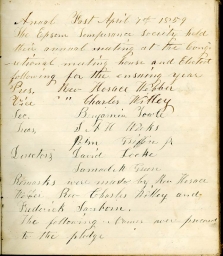 Annual Meet April 1st 1859
The Epsom Temperance Society held
their annual meeting at the congre
ational meeting house and Elected
following for the ensuing year
Pres, Rev Horace Webber
Vice " " Charles Willey
Sec. Benjamin Towle
Treas,
Directors David Locke
Remarks were made by Rev Horace
Webber Rev Charles Willey and
Frederick Sanborn.
The following names were presented
to the pledge